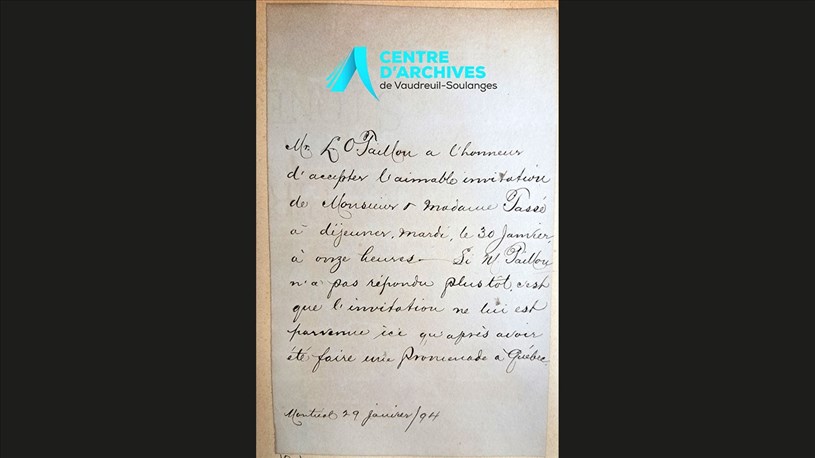 CENTRE
D'ARCHIVES
de Vaudreuil-Soulanges
Mr. L. O. Taillon a l'honneur
d'accepter l'aimable invitation
de Monsieur & madame Tassé
à déjeuner, mardi, le 30 Janvier,
à onze heures — Si Mr Taillon
n'a pas répondu plustot, c'est
que l'invitation ne lui est
parvenue ici qu'après avoir
été faire une promenade à Québec.
Montreal 29 janvier/94